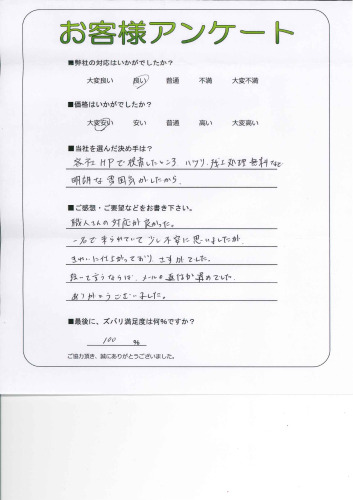 お客様アンケート
■弊社の対応はいかがでしたか？
大変良い 良い 普通 不満 大変不満
■価格はいかがでしたか？
大変安い 安い 普通 高い 大変高い
■当社を選んだ決め手は？
各社HPで検索したところ ハツリ、残土処理無料など
明朗な雰囲気がしたから。
■ご感想・ご要望などをお書き下さい。
職人さんの対応が良かった。
一名で来られていて少し不安に思いましたが
きれいに仕上がっており さすがでした。
強って言うならば、メールの返信が
ありがとうございました。
■最後に、ズバリ満足度は何%ですか？
100 %
ご協力頂き、誠にありがとうございました。